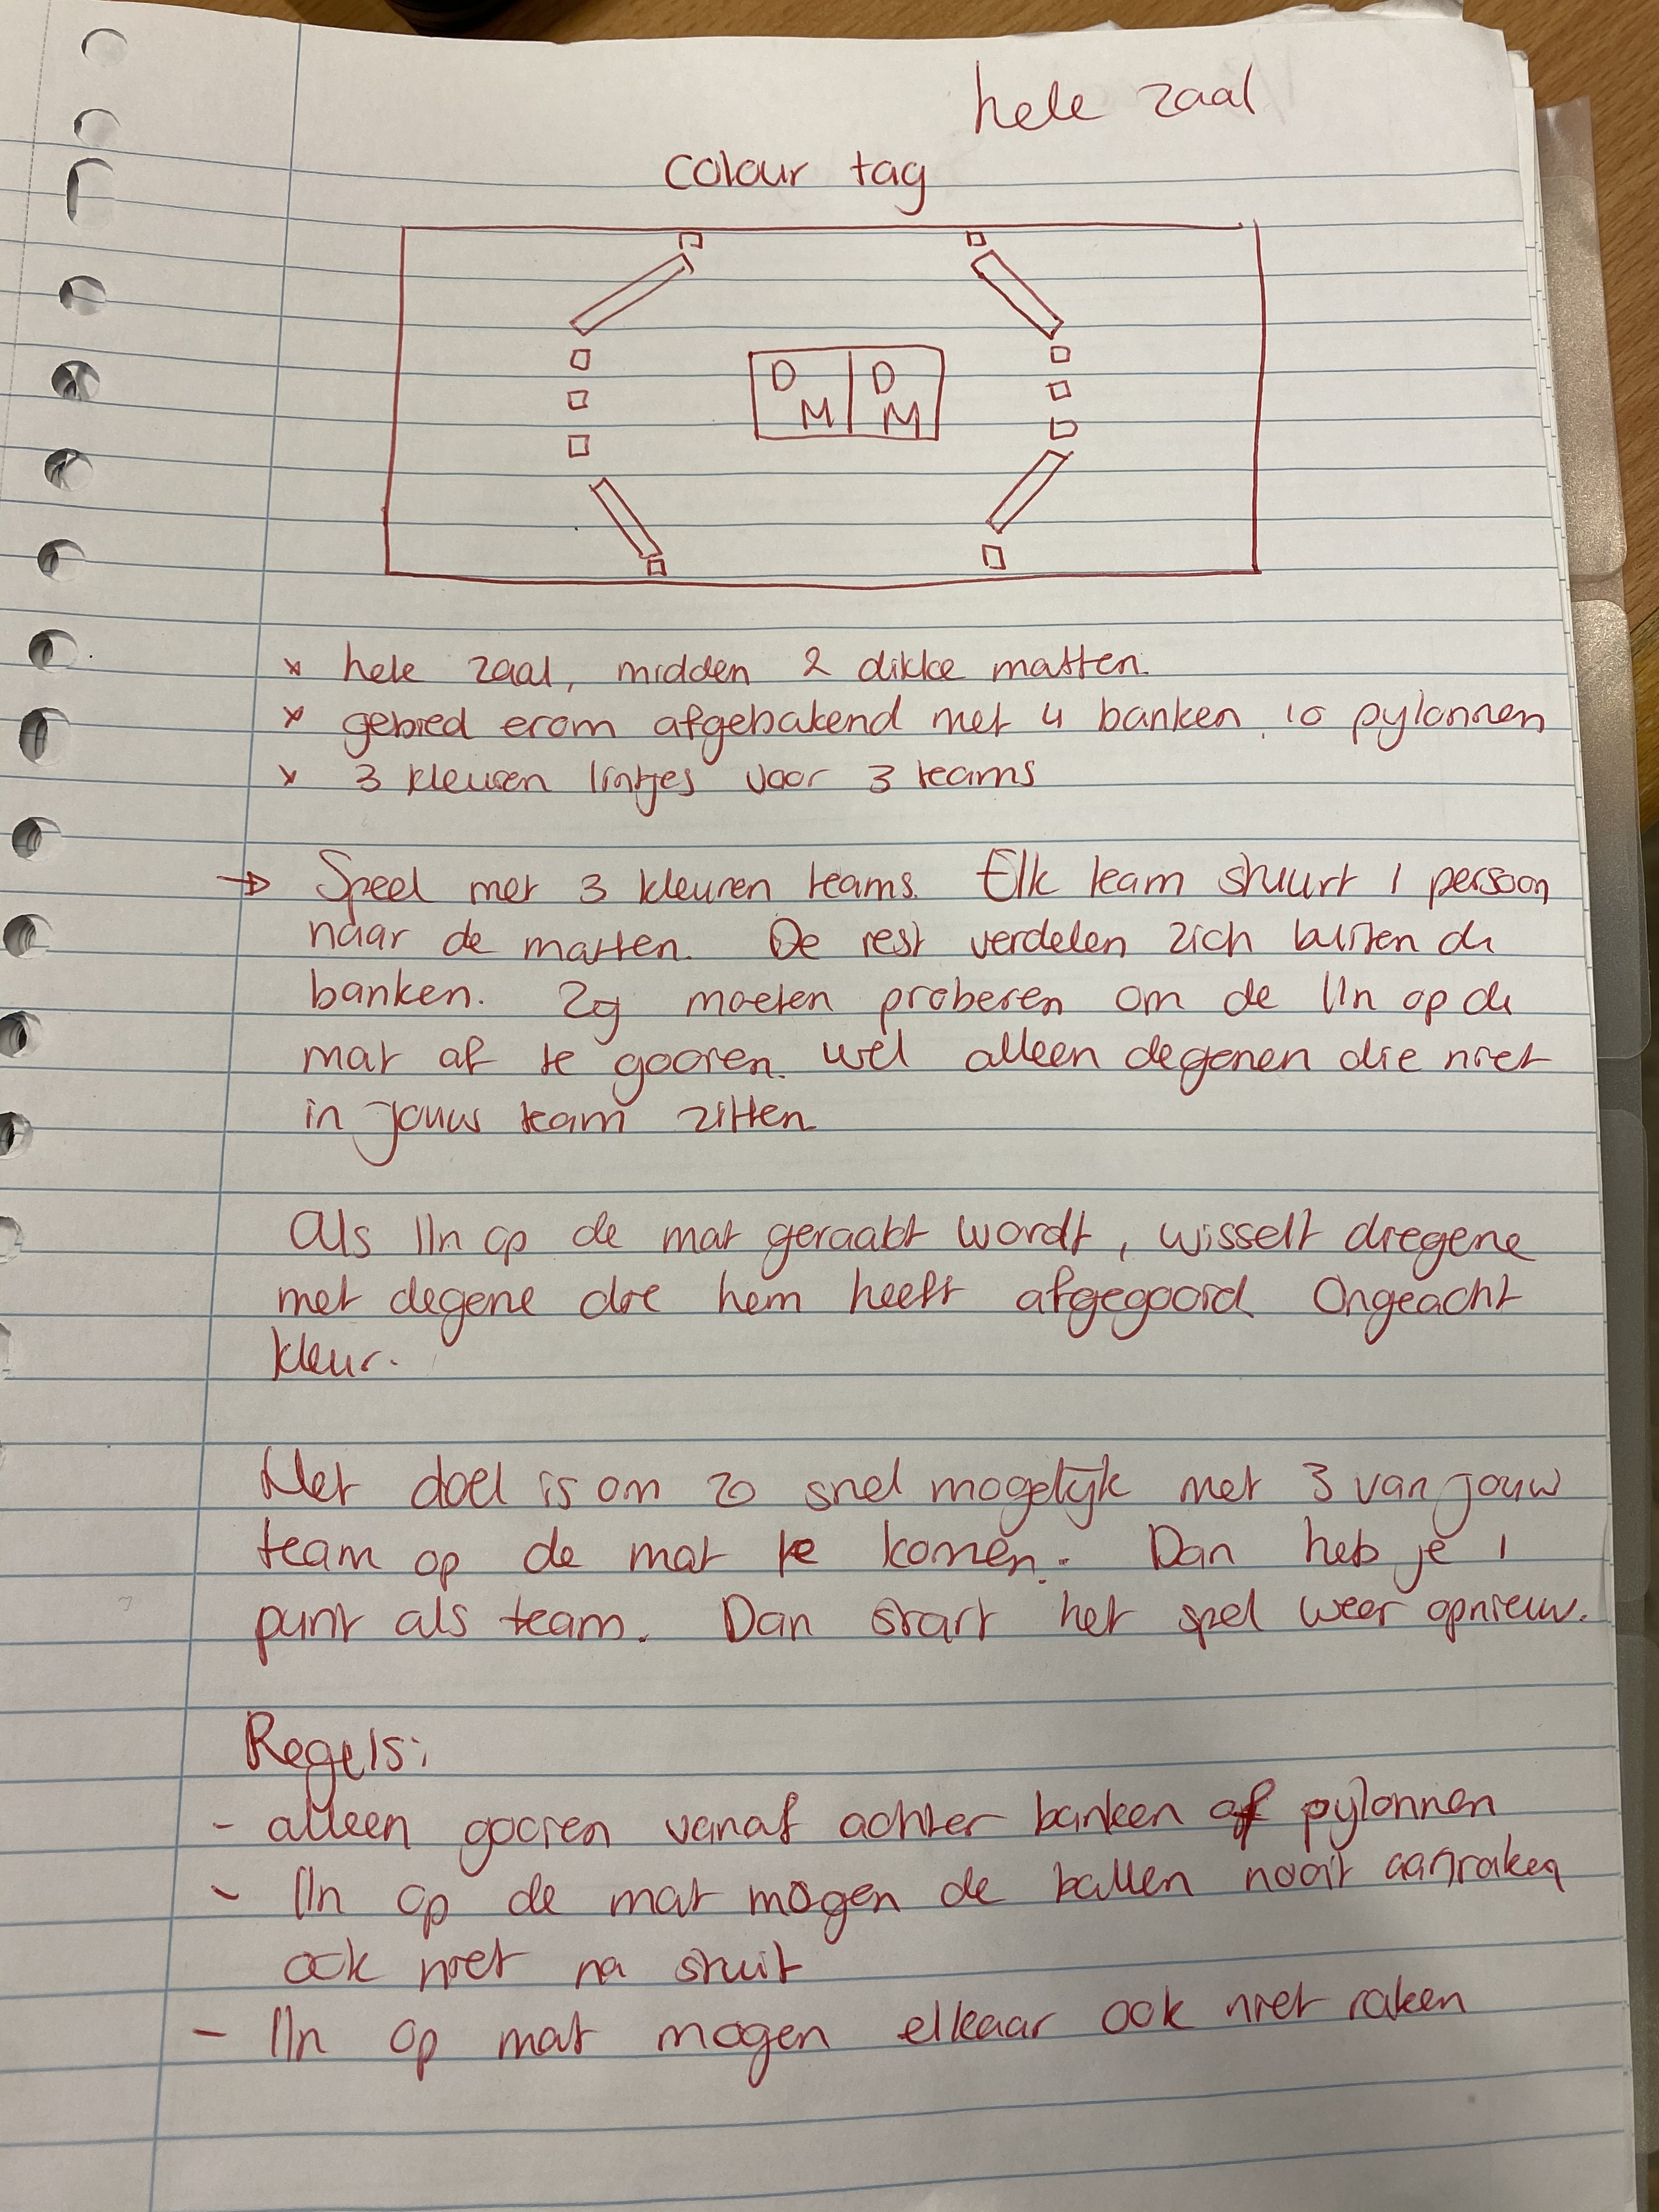 hele zaal
colour tag
D D
M M
x hele zaal, midden 2 dikke matten.
x gebied erom afgebakend met 4 banken, 10 pylonnen
x 3 kleuren lintjes voor 3 teams
→ Speel met 3 kleuren teams. Elk team stuurt 1 persoon
naar de matten. De rest verdelen zich buiten de
banken. Zij moeten proberen om de lln op de
mat af te gooien. wel alleen degenen die niet
in jouw team zitten
Als lln op de mat geraakt wordt, wisselt diegene
met degene die hem heeft afgegooid Ongeacht
kleur.
Het doel is om zo snel mogelijk met 3 van jouw
team op de mat te komen. Dan heb je 1
punt als team. Dan start het spel weer opnieuw.
Regels:
- alleen gooien vanaf achter banken of pylonnen
- lln op de mat mogen de ballen nooit aanraken
ook niet na stuit
- lln op mat mogen elkaar ook niet raken